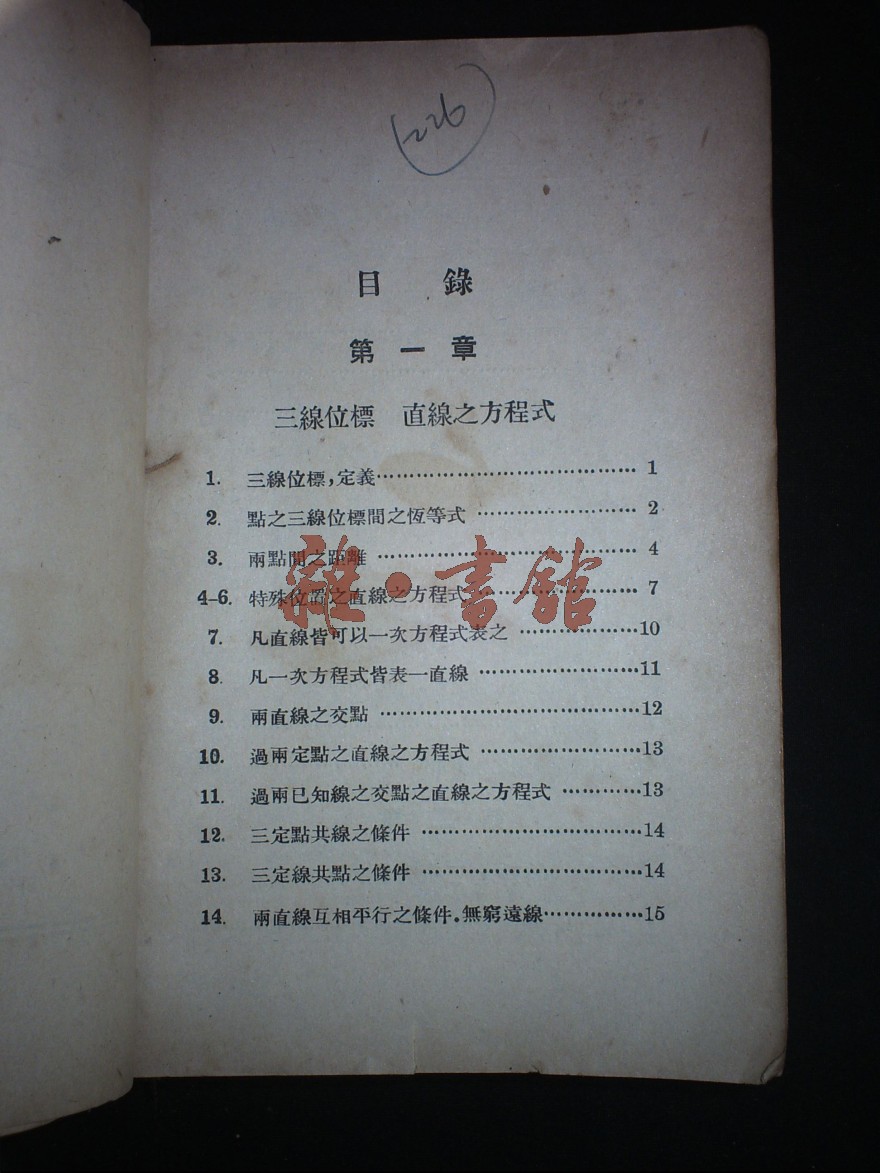 226
目 錄
第一章
三線位標 直線之方程式
1. 三線位標,定義…………………………………… 1
2. 點之三線位標間之恆等式 …………………… 2
3. 兩點間之距離 ………………………………… 4
4-6. 特殊位置之直線之方程式 …………………… 7
7. 凡直線皆可以一次方程式表之 ………………10
8. 凡一次方程式皆表一直線 ……………………11
9. 兩直線之交點 …………………………………12
10. 過兩定點之直線之方程式 ……………………13
11. 過兩已知線之交點之直線之方程式 …………13
12. 三定點共線之條件 ……………………………14
13. 三定線共點之條件 ……………………………14
14. 兩直線互相平行之條件。無窮遠線……………15
雜·書館